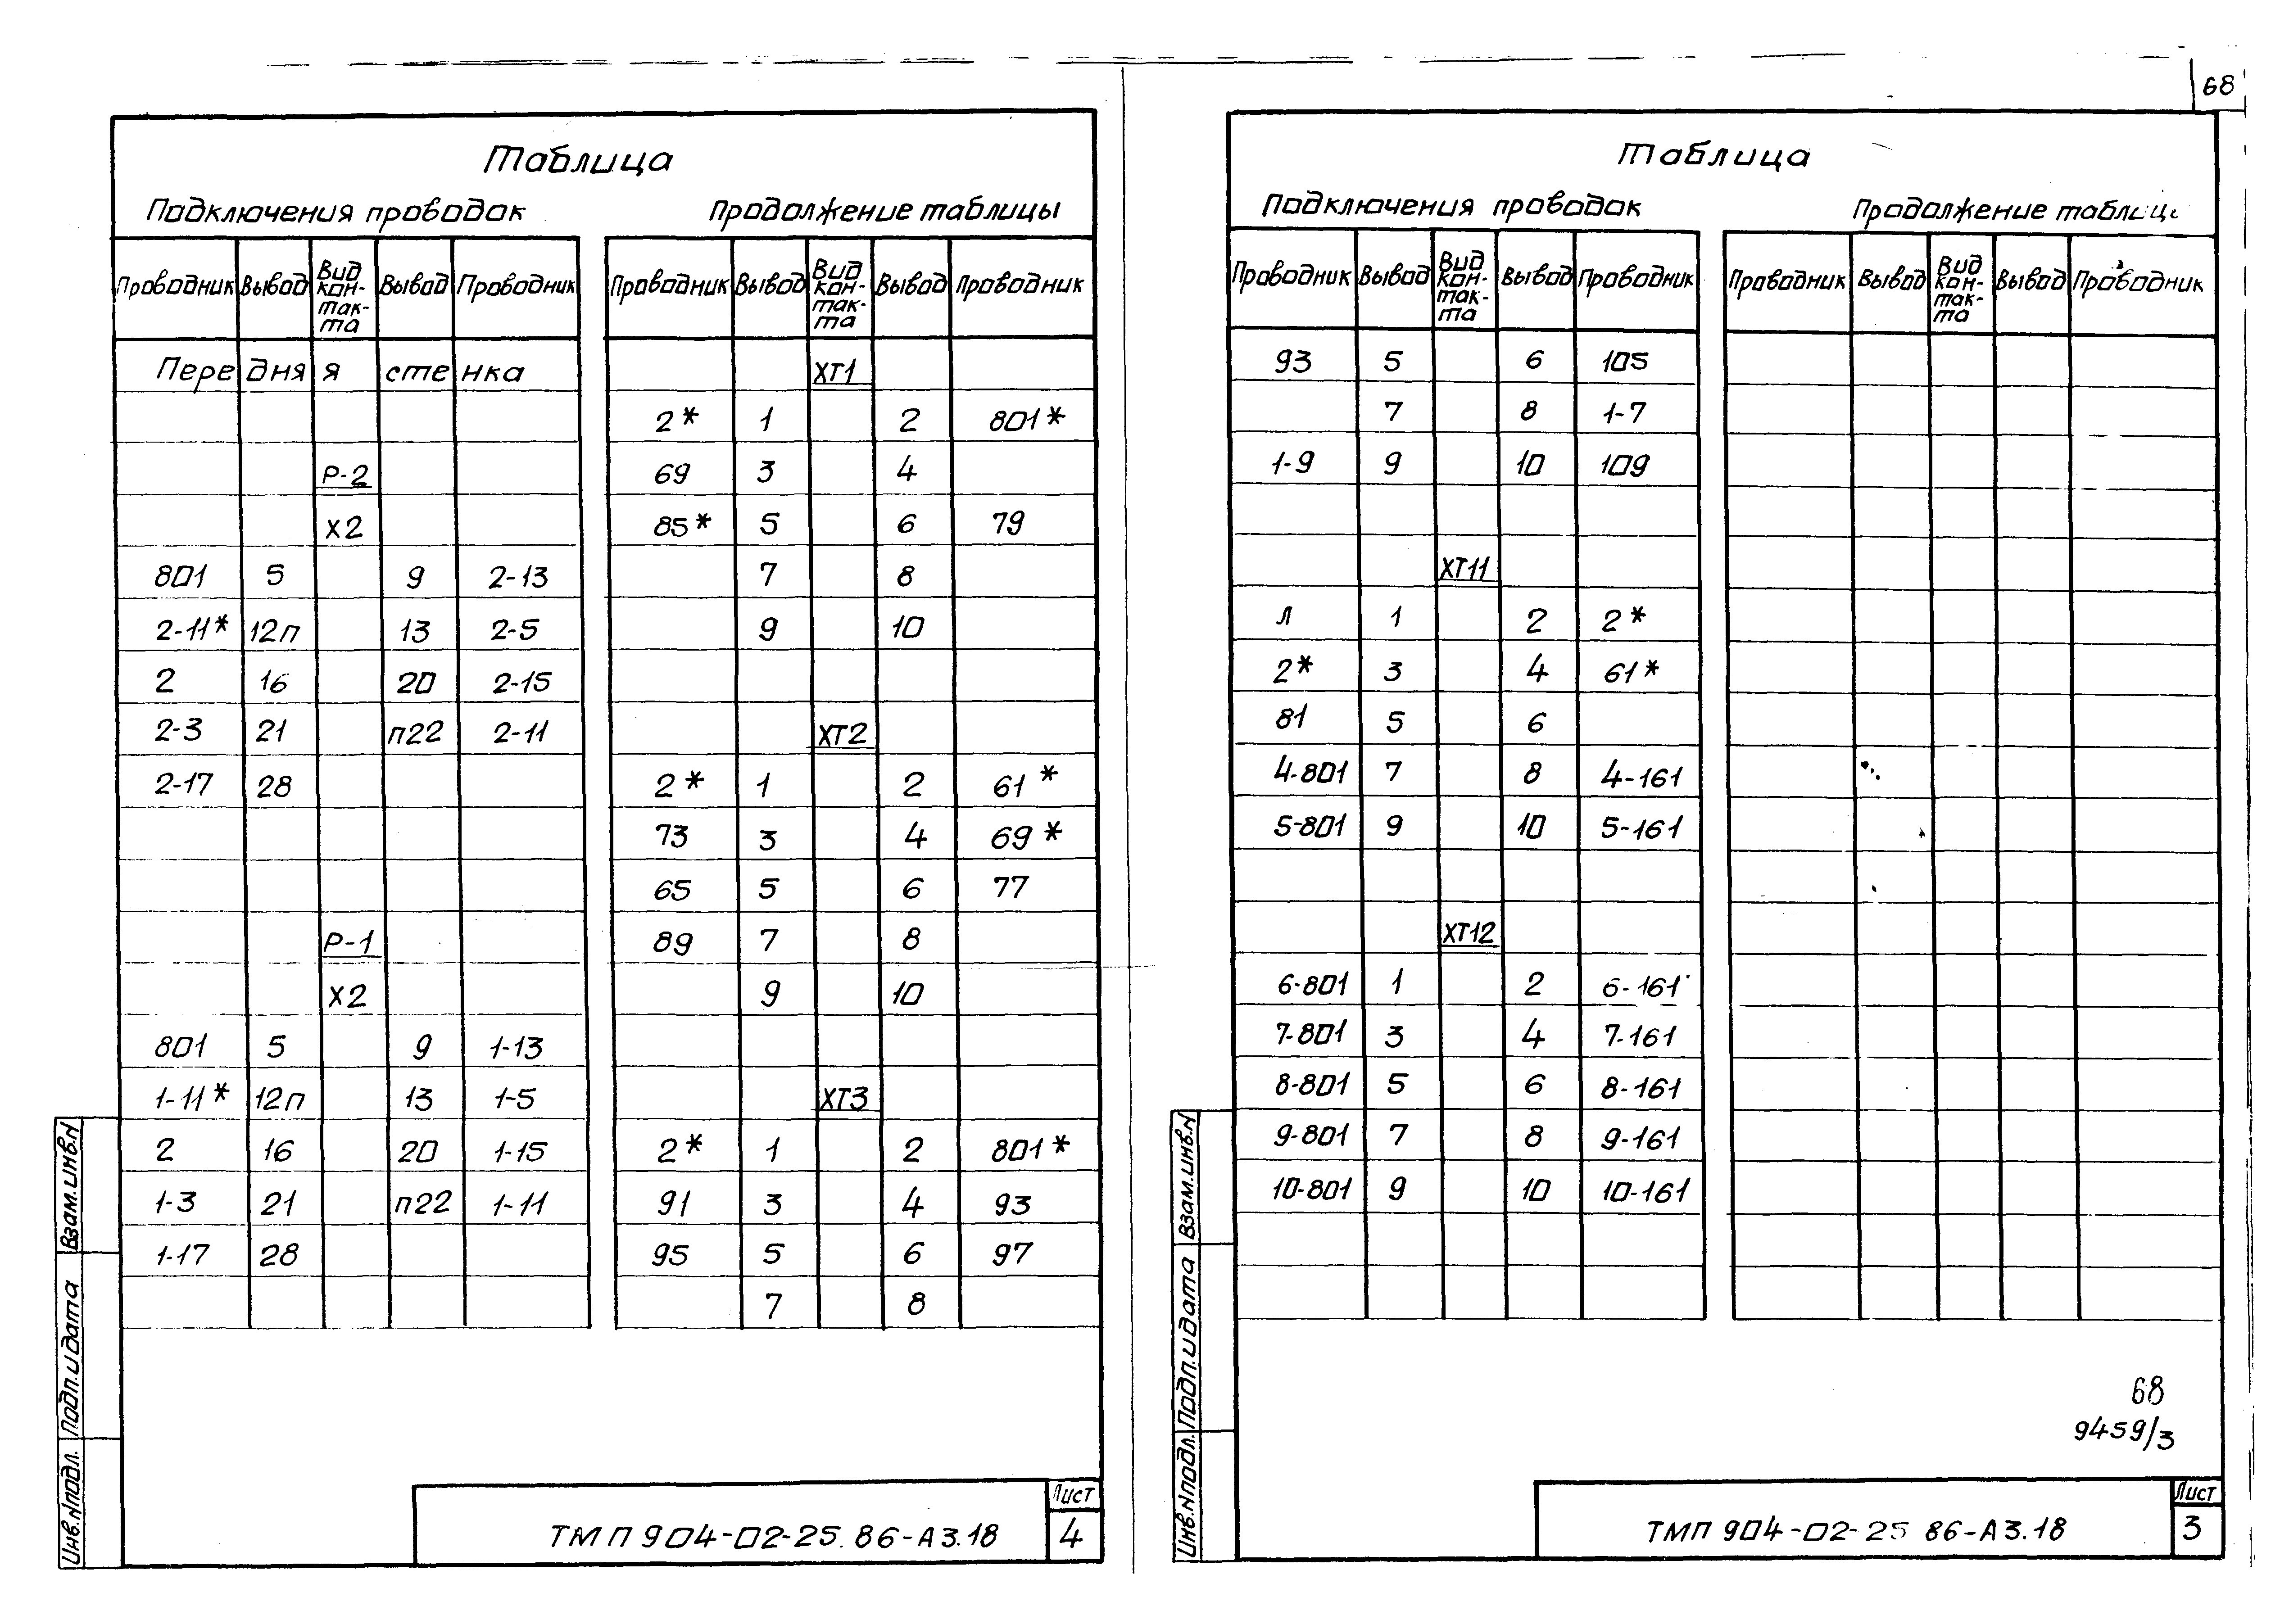 68
Таблица
Подключения проводок
Продолжение таблицы
Проводник Вывод Вид кон-так-та Вывод Проводник
Передняя стенка
Р-2
Х2
801 5 9 2-13
2-11* 12п 13 2-5
2 16 20 2-15
2-3 21 п22 2-11
2-17 28
Р-1
Х2
801 5 9 1-13
1-11* 12п 13 1-5
2 16 20 1-15
1-3 21 п22 1-11
1-17 28
Проводник Вывод Вид кон-так-та Вывод Проводник
ХТ1
2* 1 2 801*
69 3 4
85* 5 6 79
7 8
9 10
ХТ2
2* 1 2 61*
73 3 4 69*
65 5 6 77
89 7 8
9 10
ХТ3
2* 1 2 801*
91 3 4 93
95 5 6 97
7 8
Взам.инв.N
Подп.и дата
Инв.Nподл.
ТМП 904-02-25.86-А3.18
Лист
4
Таблица
Подключения проводок
Продолжение таблиц
Проводник Вывод Вид кон-так-та Вывод Проводник
93 5 6 105
7 8 1-7
1-9 9 10 109
ХТ11
Л 1 2 2*
2* 3 4 61*
81 5 6
4-801 7 8 4-161
5-801 9 10 5-161
ХТ12
6-801 1 2 6-161
7-801 3 4 7-161
8-801 5 6 8-161
9-801 7 8 9-161
10-801 9 10 10-161
Проводник Вывод Вид кон-так-та Вывод Проводник
68
9459/3
Взам.инв.N
Подп.и дата
Инв.Nподл.
ТМП 904-02-25 86-А3.18
Лист
3